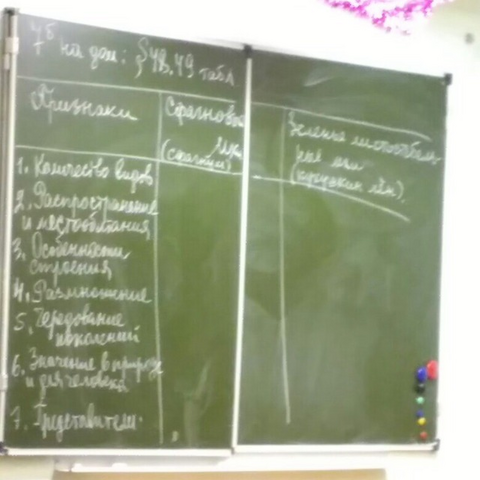 на дом: § 48.49 табл
Признаки
Сфагновые
мхи
(сфагнум)
Зеленые листостебель
ные мхи
(кукушкин лён)
1. Количество видов
2. Распространение
и местообитания
3. Особенности
строения
4. Размножение
5. Чередование
поколений
6. Значение в природе
и для человека
7. Представители